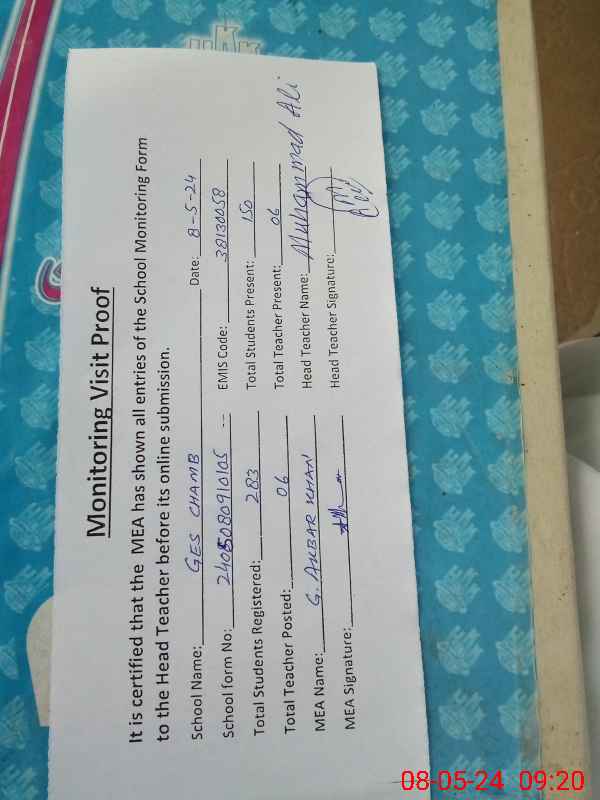 Monitoring Visit Proof
It is certified that the MEA has shown all entries of the School Monitoring Form
to the Head Teacher before its online submission.
School Name: GES CHAMB Date: 8-5-24
School form No: 2405080910105 -- EMIS Code: 38130058
Total Students Registered: 283 Total Students Present: 150
Total Teacher Posted: 06 Total Teacher Present: 06
MEA Name: G. AKBAR KHAN Head Teacher Name: Muhammad Ali
MEA Signature: Head Teacher Signature:
08-05-24 09:20